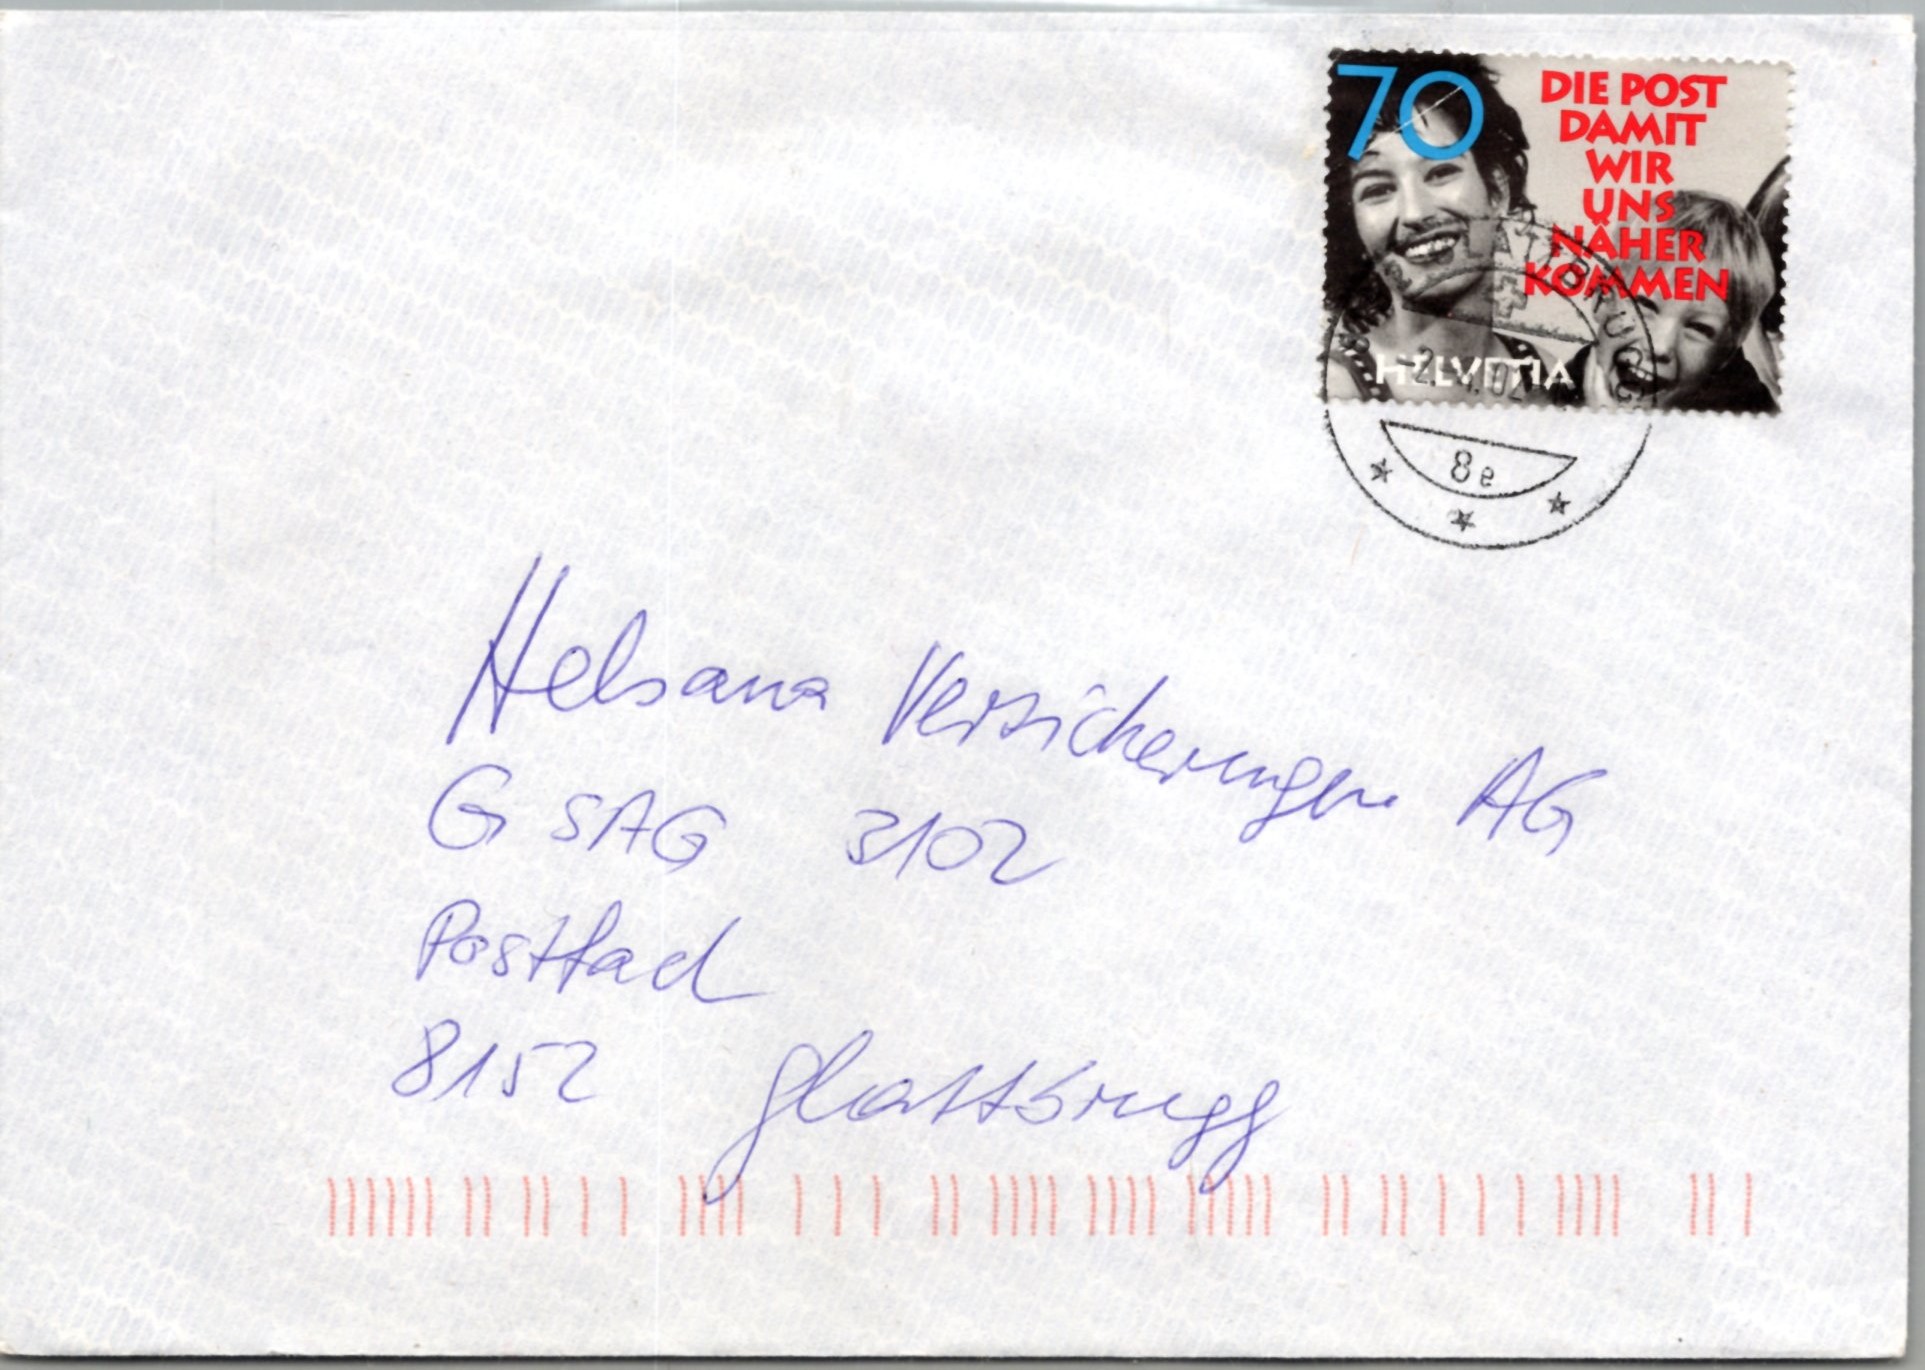 70
DIE POST
DAMIT
WIR
UNS
NÄHER
KOMMEN
HELVETIA
8e
Helsana Versicherungen AG
G SAG 3102
Postfach
8152 Glattbrugg